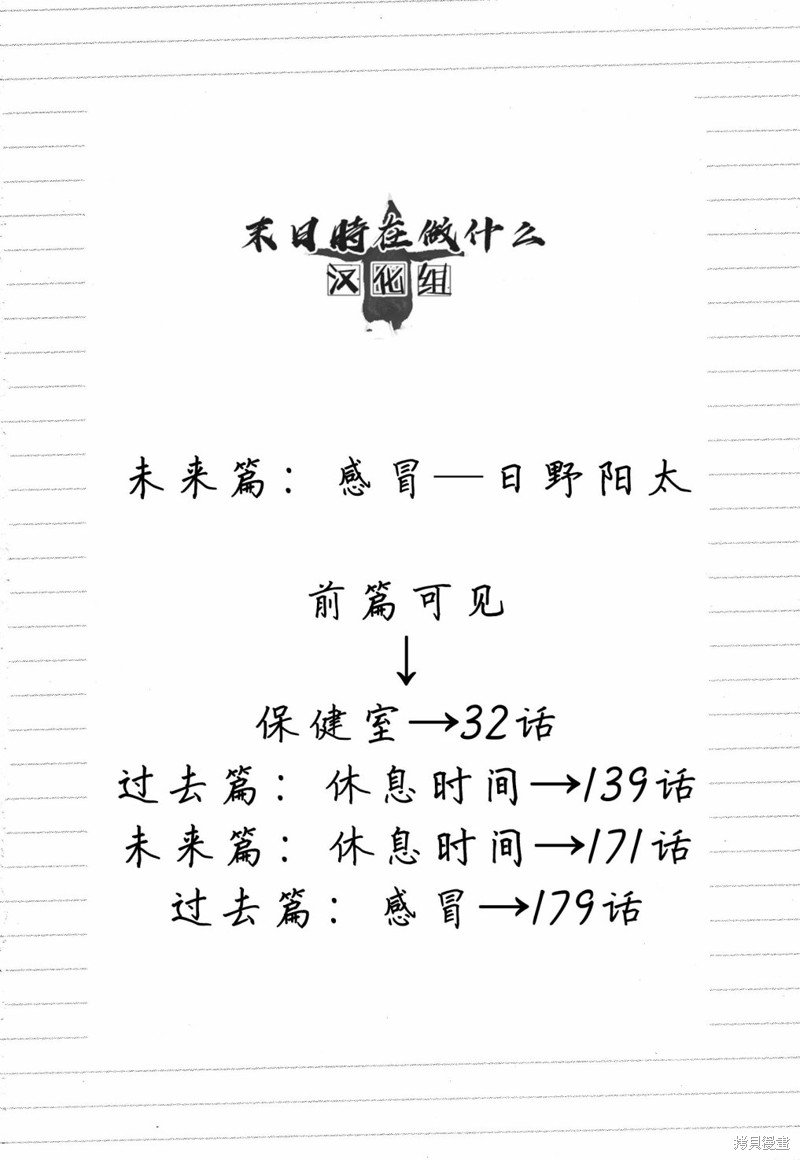 末日時在做什么
汉化组
未来篇：感冒—日野阳太
前篇可见
↓
保健室→32话
过去篇：休息时间→139话
未来篇：休息时间→171话
过去篇：感冒→179话
拷貝漫畫